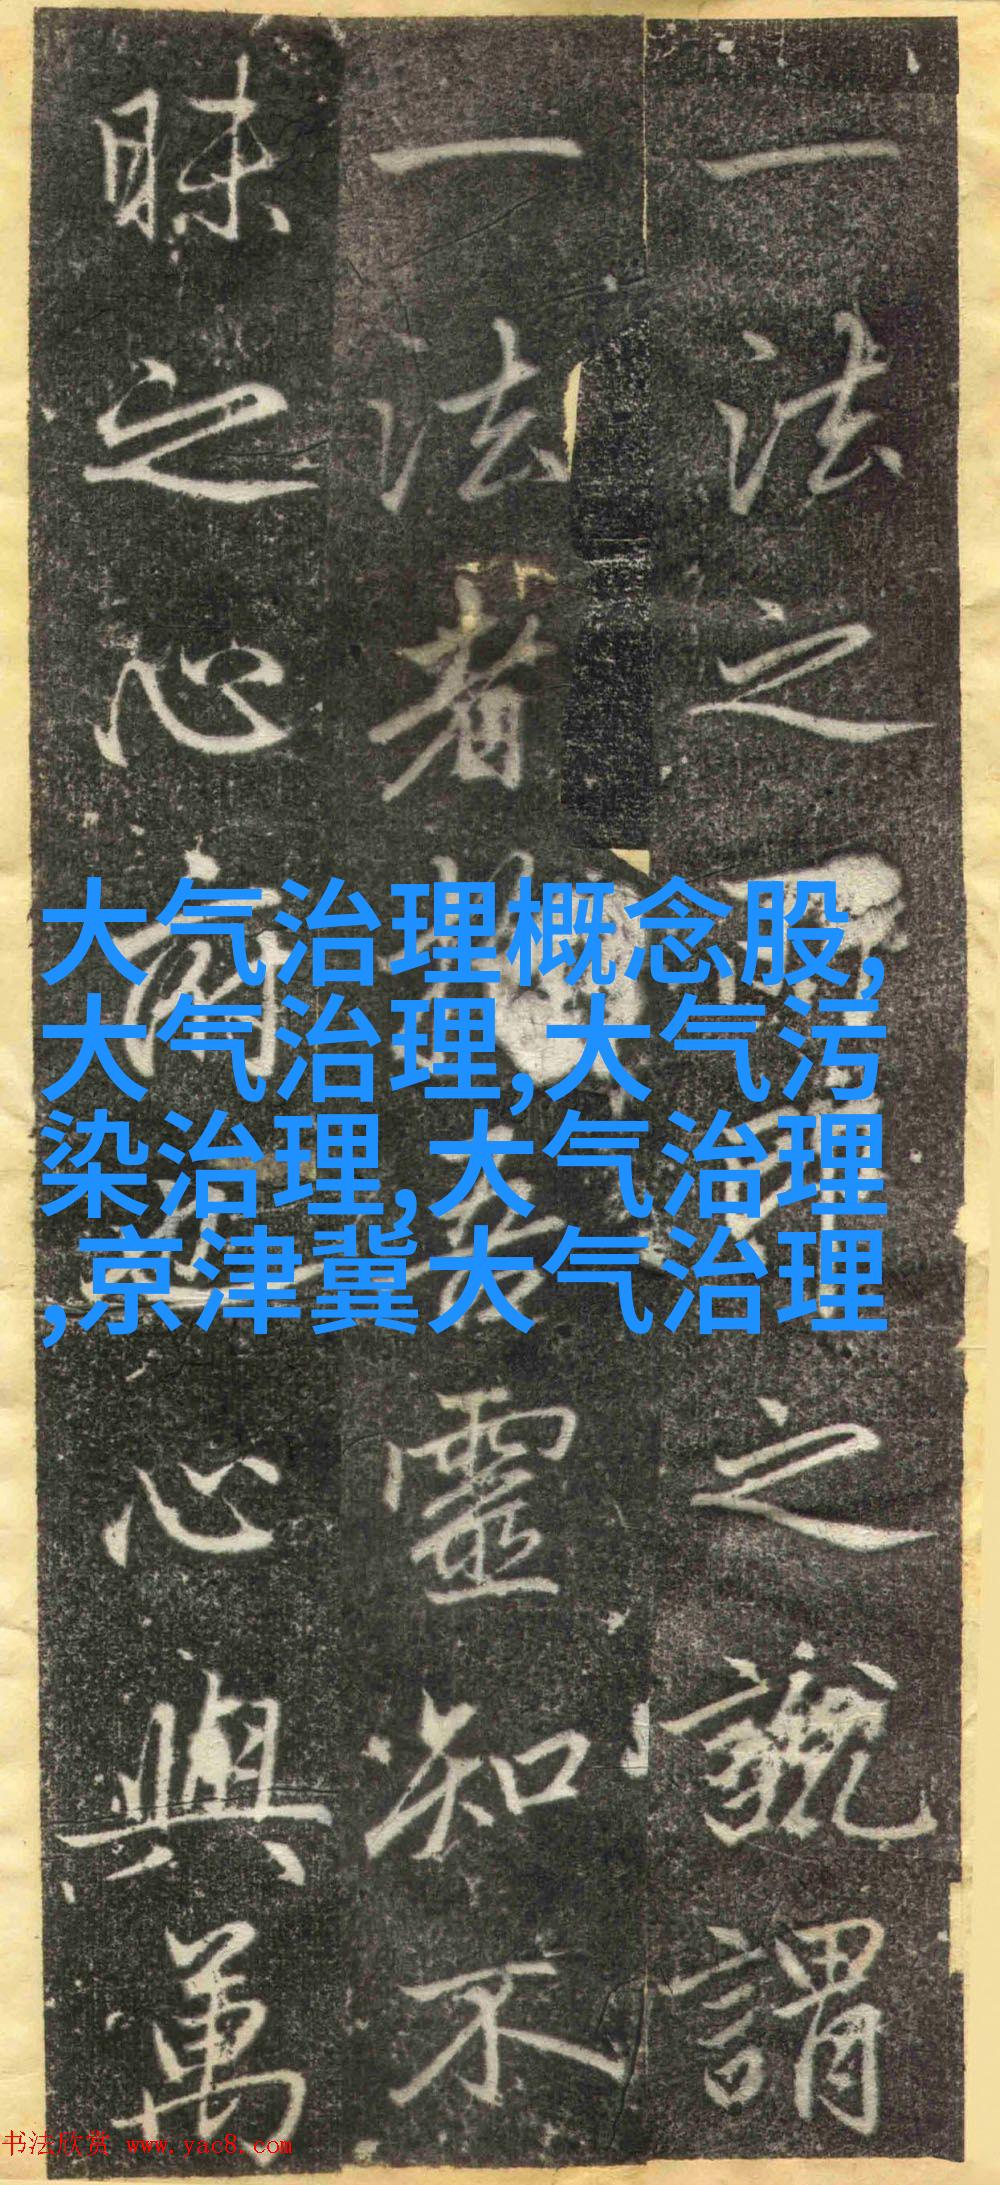 一法之之號謂
一法者靈知不
昧之心心與萬
大气治理概念股,
大气治理,大气污
染治理,大气治理
,京津冀大气治理
书法欣赏 www.yac8.com